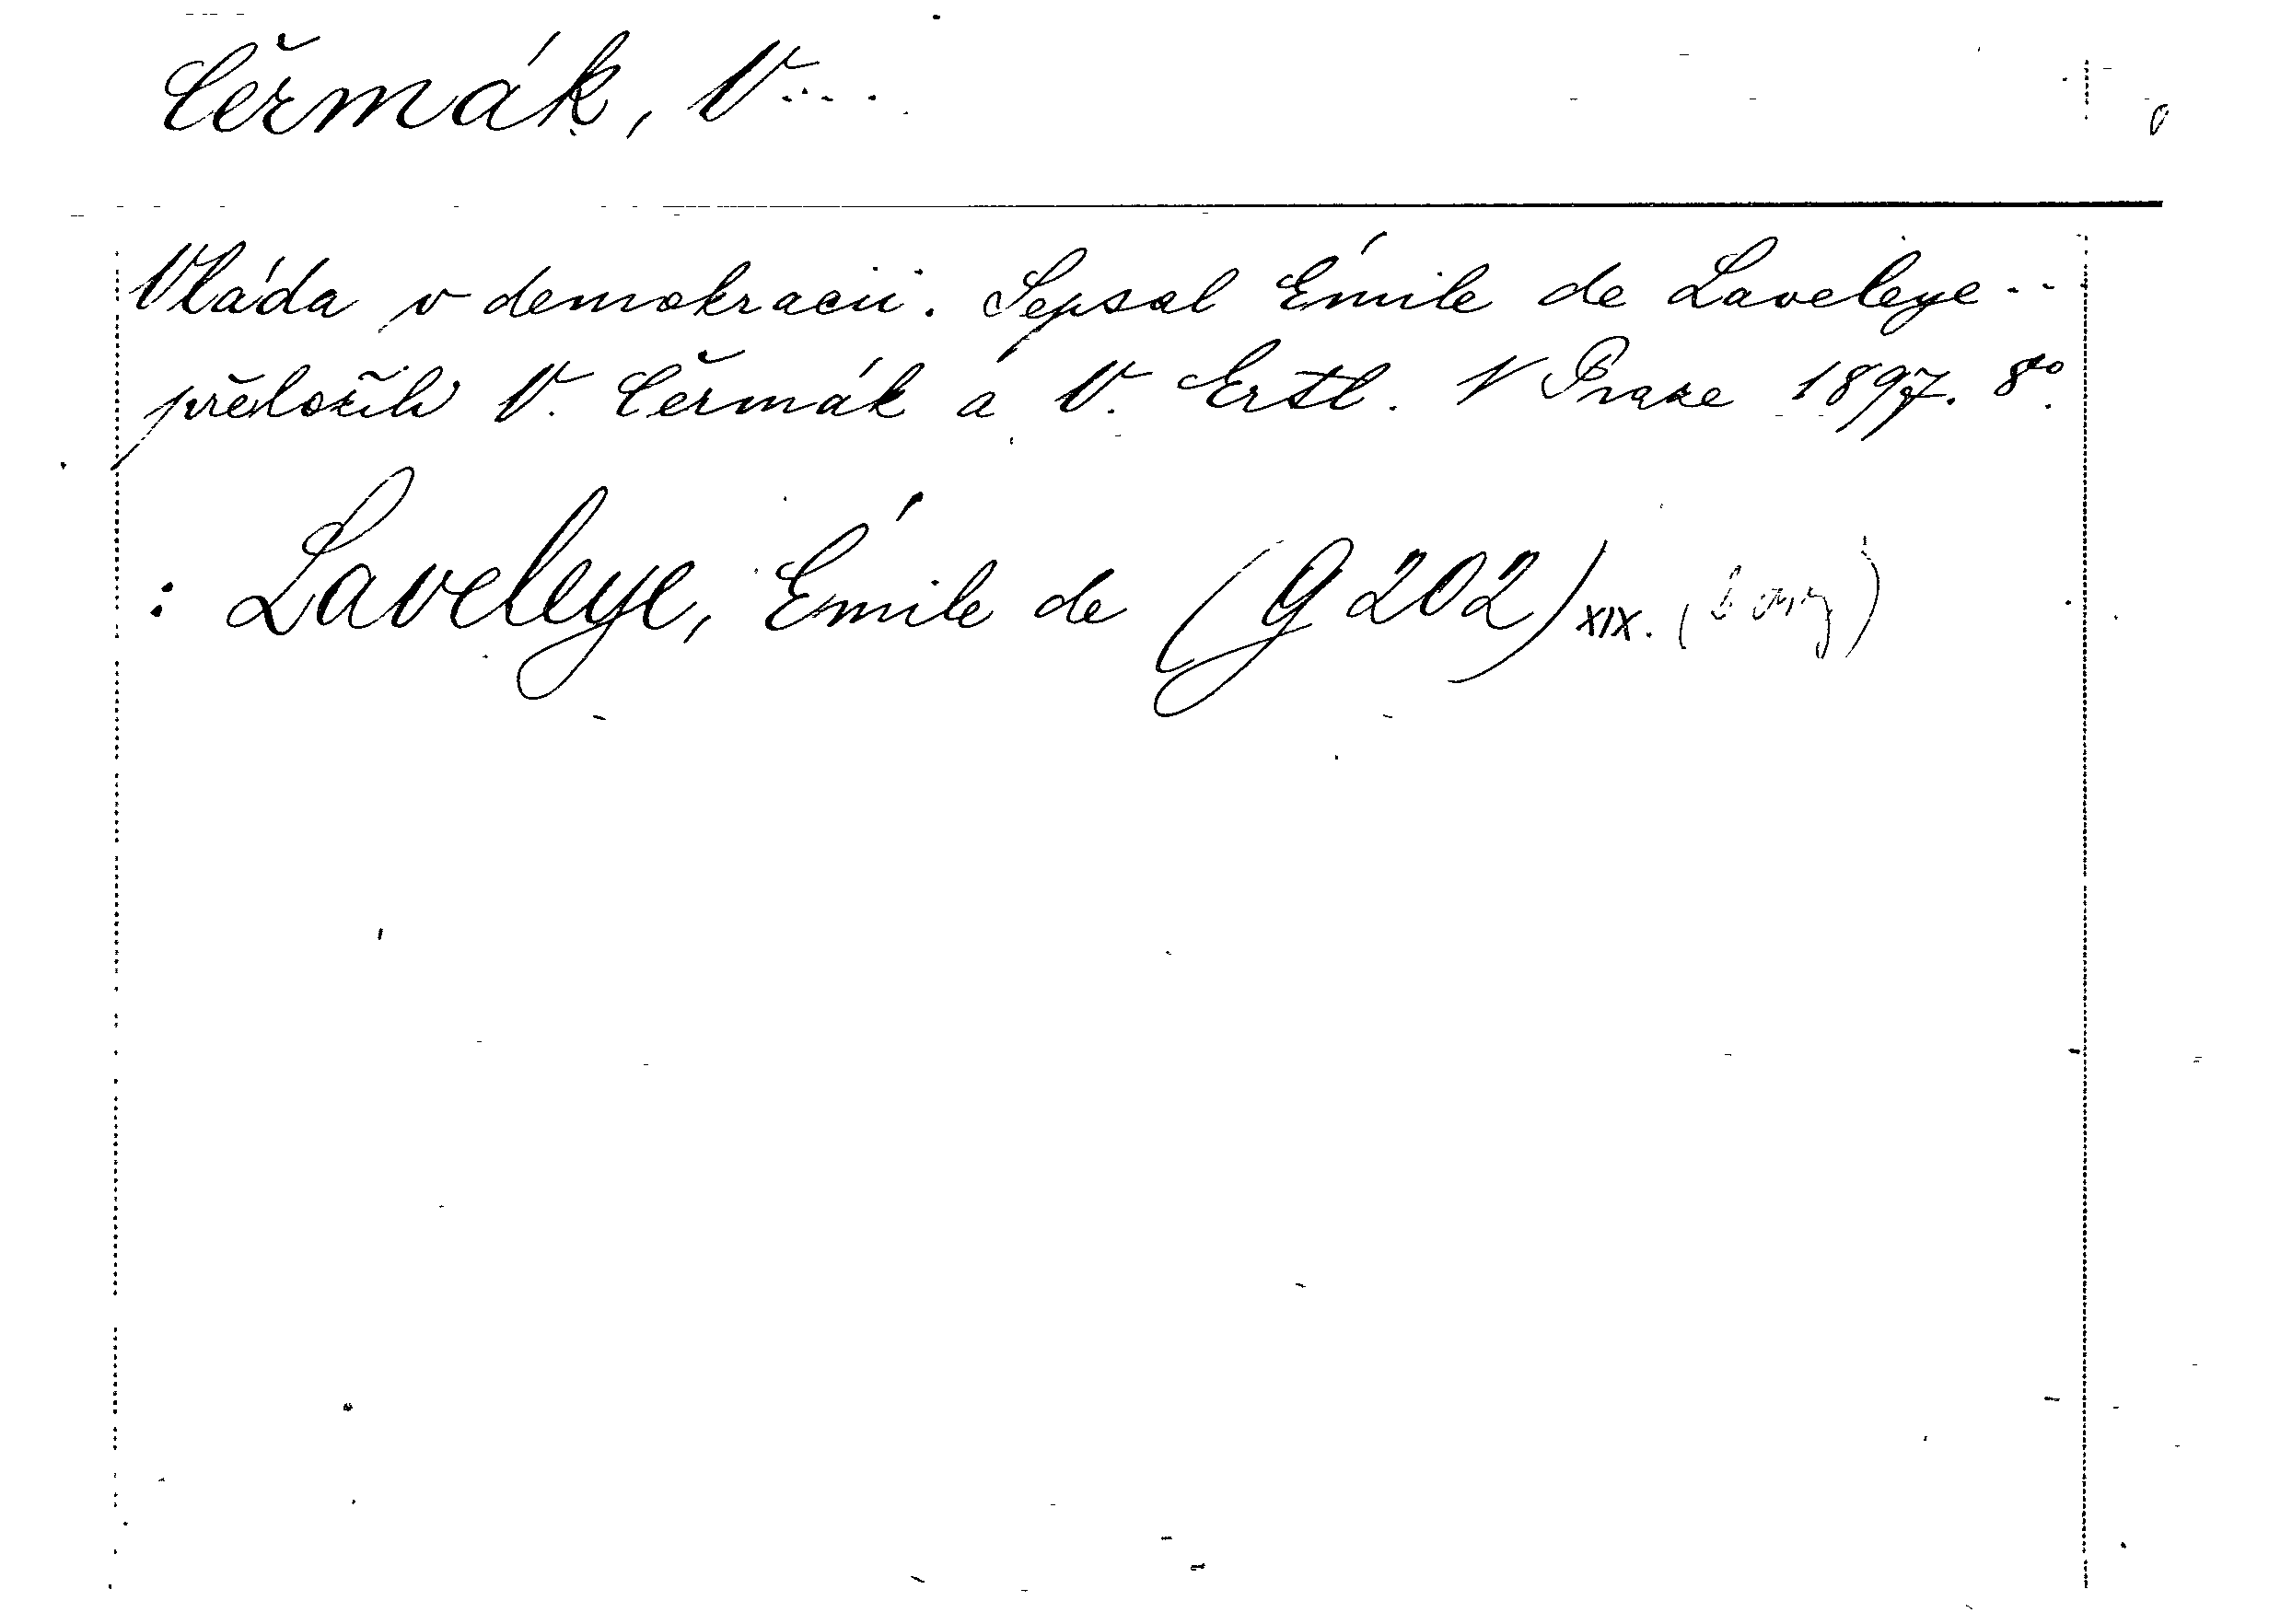 Čermák, V....
Vláda v demokracii. Sepsal Émile de Laveleye..
přeložili V. Čermák a V. Ertl. V Praze 1897. 8°.
: Laveleye, Émile de (G 202) XIX.